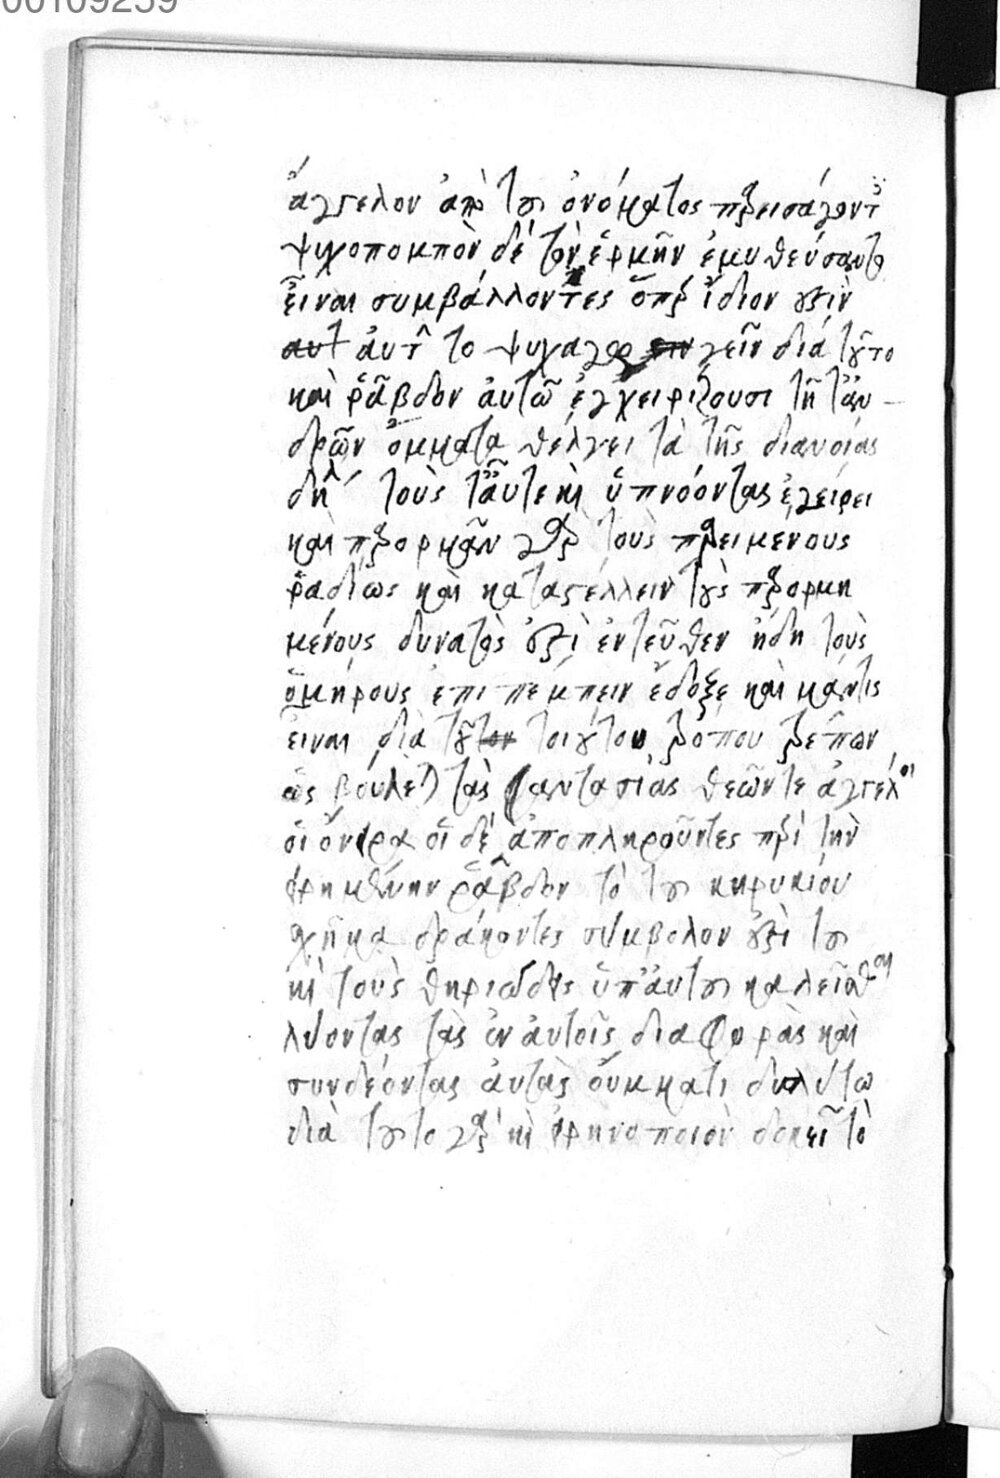 00109259
ἄγγελον ἀπὸ τοῦ ὀνόματος παρεισάγοντες
ψυχοπομπὸν δὲ τὸν ἑρμῆν ἐμυθεύσαντο
εἶναι συμβάλλοντες ὅπερ ἴδιον ἐστὶν
αυτ ἀυτοῦ το ψυχαγωγεῖν διὰ τοῦτο
καὶ ῥάβδον ἀυτῶ ἐγχειρίζουσι τῆ τ' ἀν
δρῶν ὄμματα θέλγει τὰ τῆς διανοίας
δηλ τοὺς τ' ἄυτε καὶ ὑπνόοντας ἐγείρει
καὶ παρορμᾶν γὰρ τοὺς παρειμένους
ῥαδίως καὶ καταστέλλειν τοὺς παρορμη
μένους δυνατὸς ἐστὶ ἐντεῦθεν ἤδη τοὺς
ὀμήρους ἐπιπέμπειν ἔδοξε καὶ μάντις
εἶναι διὰ τοιούτου τρόπου τρέπων
ὡς βούλεται τὰς φαντασίας θεῶν τε ἀγγελοι
οἱ ὄνειροι οἱ δὲ ἀποπληροῦντες περὶ τὴν
εἰρημένην ῥάβδον τὸ τοῦ κηρυκίου
σχῆμα δράκοντες σύμβολον ἐστὶ τοῦ
καὶ τοὺς θηριώδεις ὑπ' ἀυτοῦ καλεῖσθαι
λύοντας τὰς ἐν ἀυτοῖς διαφορὰς καὶ
συνδέοντας ἀυτὰς ἅμματι δυλύτω
διὰ τοῦτο γὰρ καὶ εἰρηνοποιὸν δοκεῖ τὸ